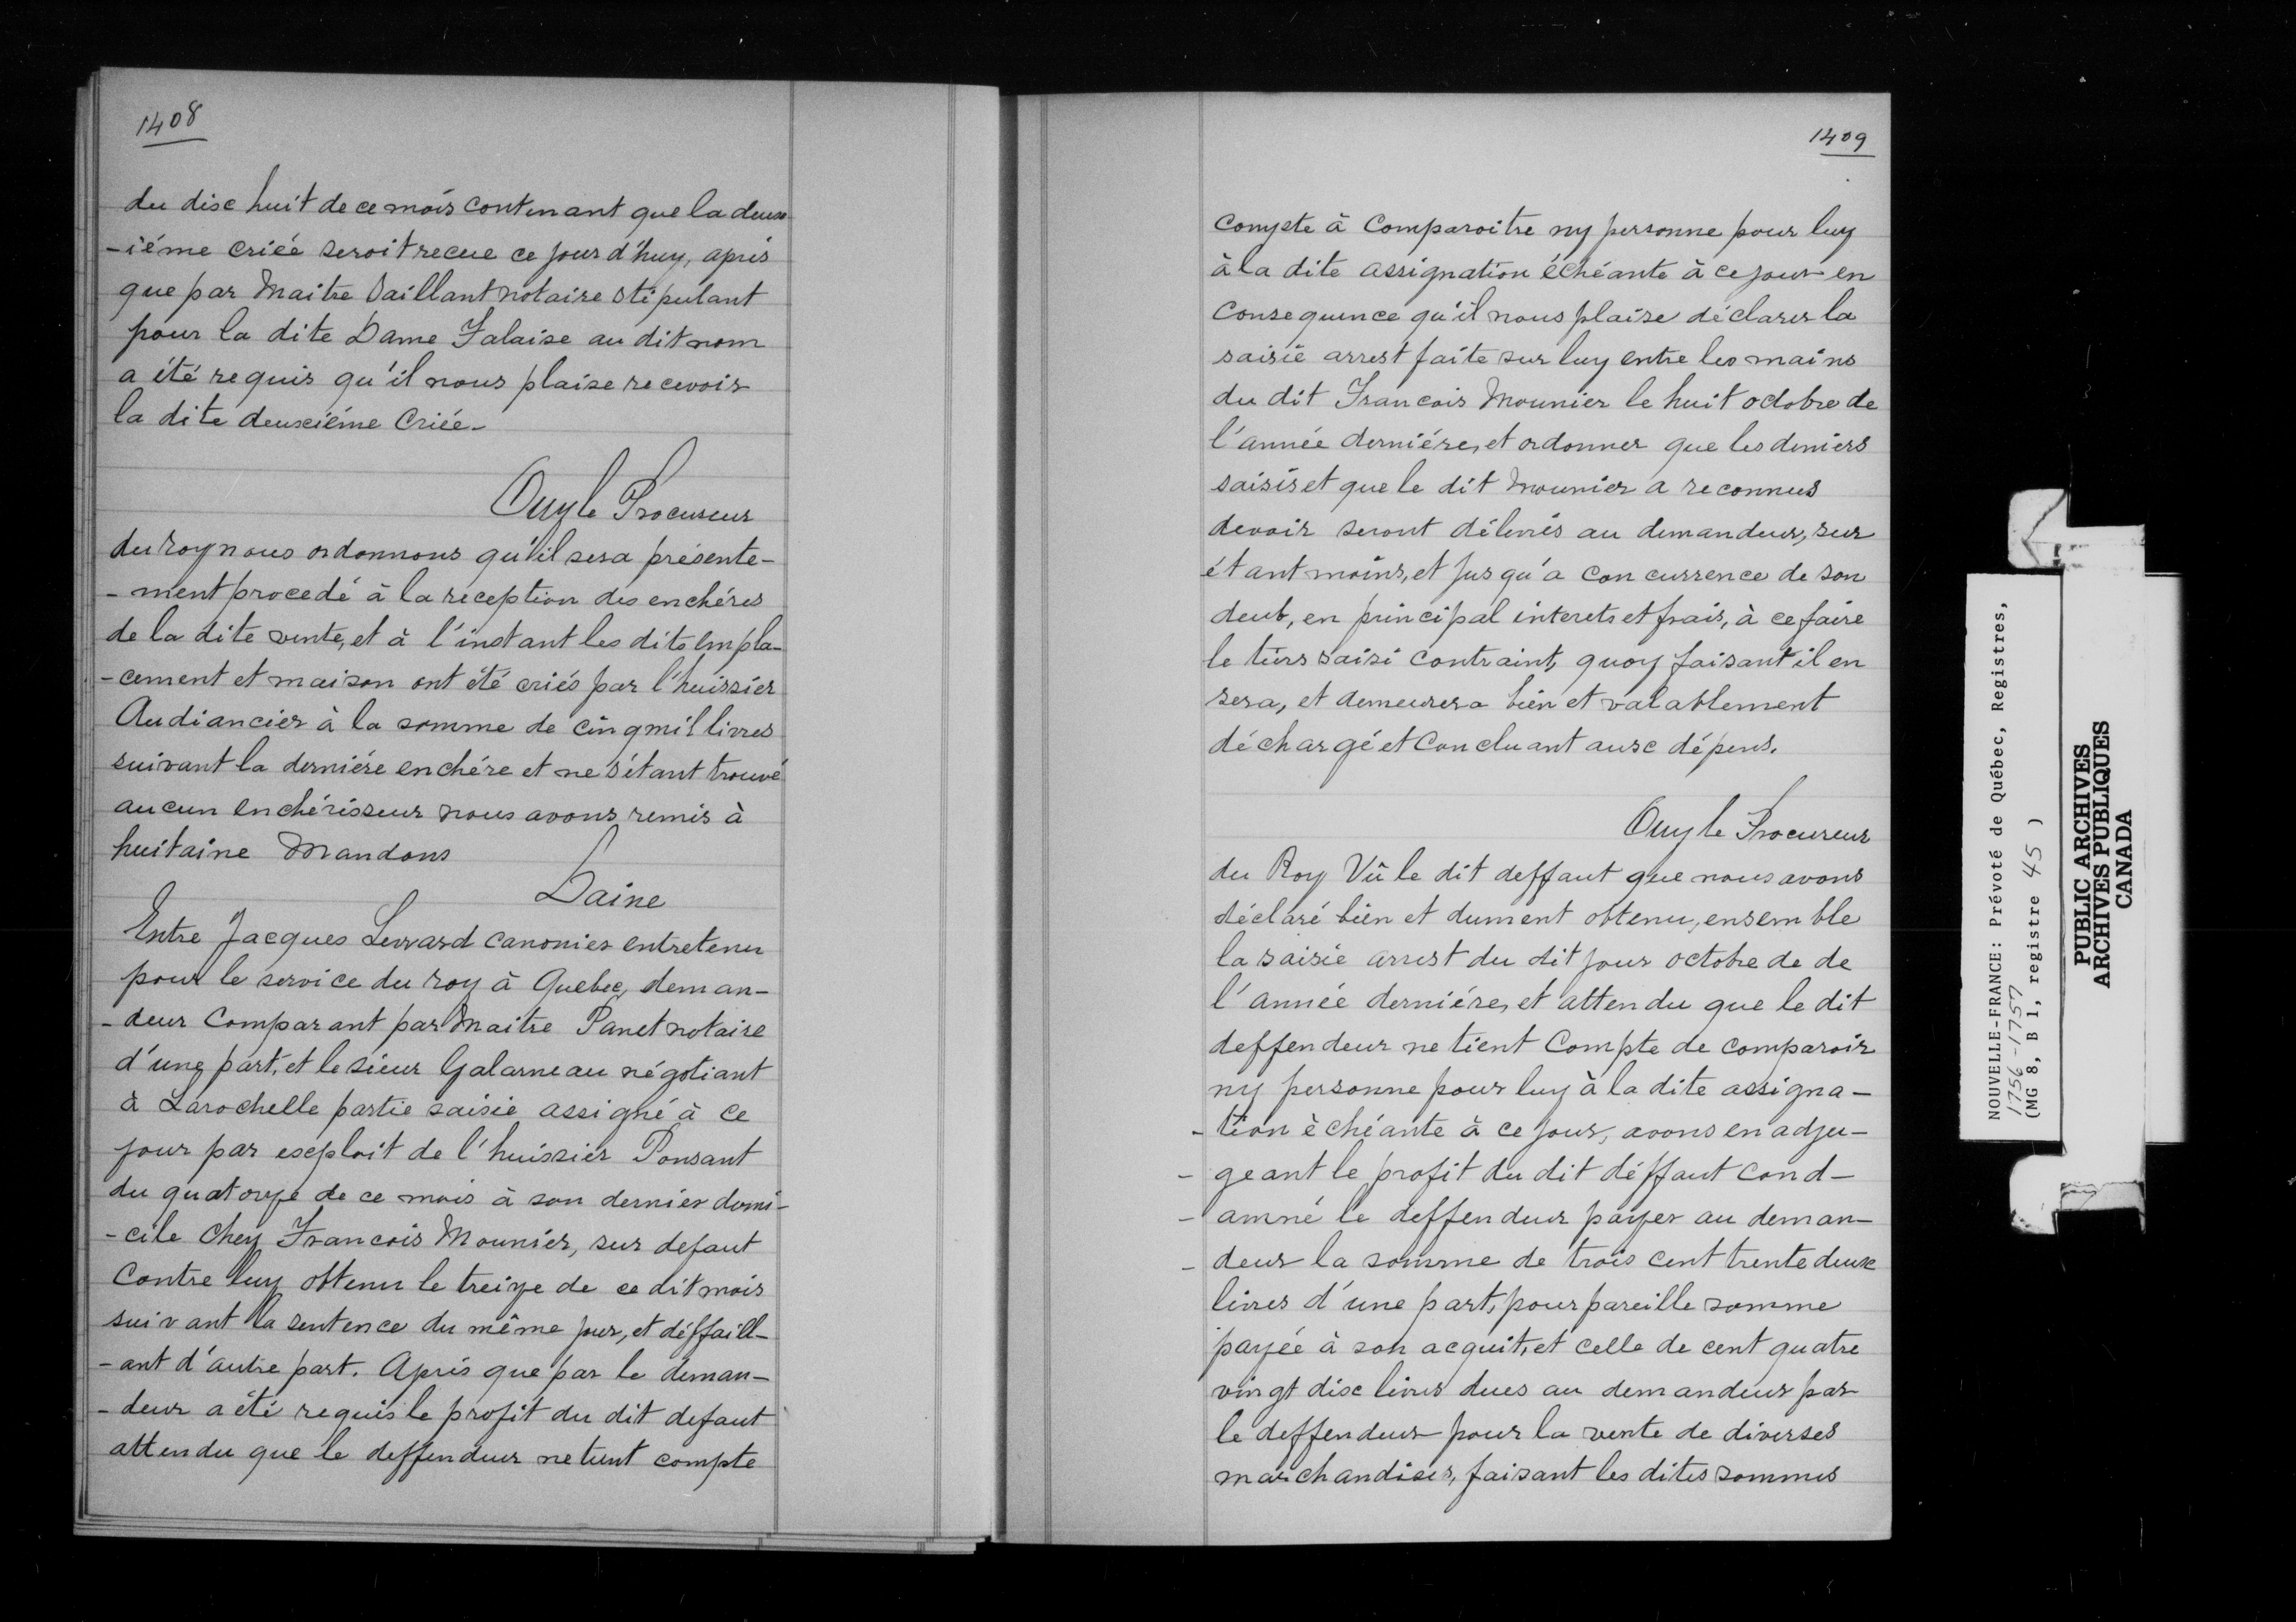 1408
du dix huit de ce mois contenant que la deux
-iéme criée seroit recue ce jour d'huy, aprés
que par Maitre Saillant notaire stipulant
pour la dite Dame Falaise au dit nom
a été requis qu'il nous plaise recevoir
la dite deuxiéme Criée-
Ouy le Procureur
du roy nous ordonnons qu'il sera présente-
-ment procedé à la reception des enchéres
de la dite vente, et à l'instant les dits empla-
-cement et maison ont été criés par l'huissier
Audiancier à la somme de cinq mil livres
suivant la derniére enchére et ne s'étant trouvé
aucun enchérisseur nous avons remis à
huitaine Mandons
Daine
Entre Jacques Levrard canonier entretenu
pour le service du roy à Quebec, deman-
-deur Comparant par Maitre Panet notaire
d'une part, et le sieur Galarneau négotiant
à Larochelle partie saisie assigné à ce
jour par exploit de l'huissier Ponsant
du quatorze de ce mois à son dernier domi-
-cile chez Francois Mounier, sur defaut
Contre luy obtenu le treize de ce dit mois
suivant la sentence du même jour, et déffaill-
-ant d'autre part. Aprés que par le deman-
-deur a été requis le profit du dit defaut
attendu que le deffendeur ne tient compte
1409
compte à Comparoitre ny personne pour luy
à la dite assignation échéante à ce jour en
Consequence qu'il nous plaise déclarer la
saisie arrest faite sur luy entre les mains
du dit Francois Mounier le huit octobre de
l'année derniére, et ordonner que les deniers
saisis et que le dit Mounier a reconnus
devoir seront délivrés au demandeur, sur
étant moins, et jusqu'a concurrence de son
deub, en principal interets et frais, à ce faire
le tiers saisi contraint, quoy faisant il en
sera, et demeurera bien et valablement
déchargé et Concluant aux dépens.
Ouy le Procureur
du Roy Vû le dit deffaut que nous avons
déclaré bien et dument obtenu, ensemble
la saisie arrest du dit jour octobre de de
l'année derniére, et attendu que le dit
deffendeur ne tient Compte de comparoir
ny personne pour luy à la dite assigna-
-tion échéante à ce jour, avons en adju-
-geant le profit du dit déffaut cond-
-amné le deffendeur payer au deman-
-deur la somme de trois cent trente deux
livres d'une part, pour pareille somme
payéé à son acquit, et celle de cent quatre
vingt dix livres dues au demandeur par
le deffendeur pour la vente de diverses
marchandises, faisant les dites sommes
NOUVELLE-FRANCE: Prévoté de Québec, Registres,
1756-1757
(MG 8, B 1, registre 45 )
PUBLIC ARCHIVES
ARCHIVES PUBLIQUES
CANADA